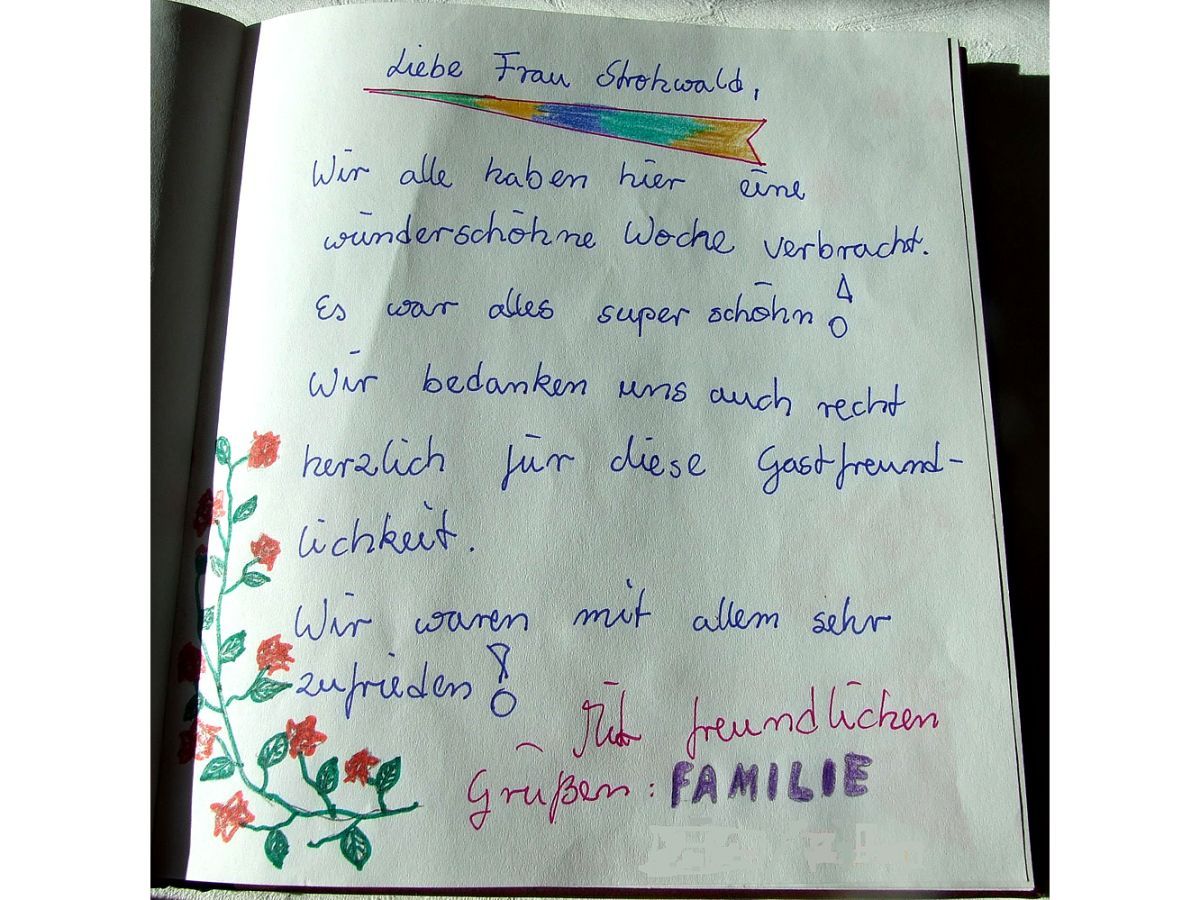 Liebe Frau Strohwald,
Wir alle haben hier eine
wünderschöhne Woche verbracht.
Es war alles super schöhn!
Wir bedanken uns auch recht
herzlich für diese Gastfreund-
lichkeit.
Wir waren mit allem sehr
zufrieden!
Mit freundlichen
Grüßen: FAMILIE